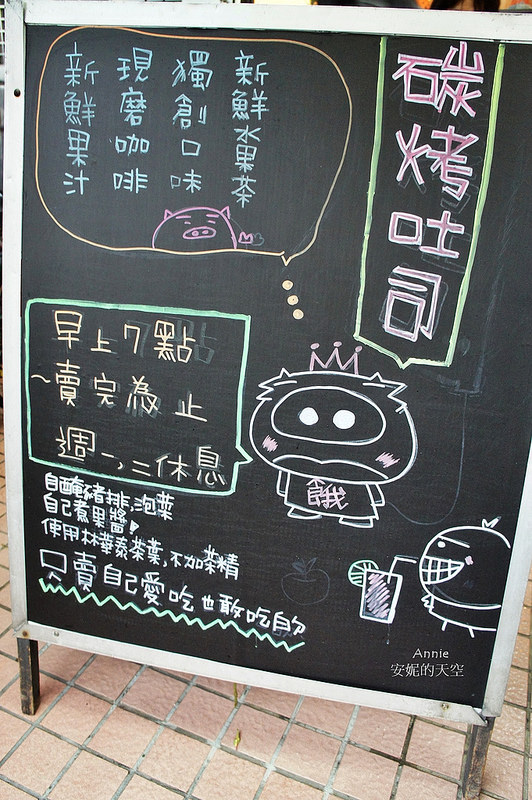 碳烤吐司
新鮮水果茶
獨創口味
現磨咖啡
新鮮果汁
早上7點
~賣完為止
週一,二休息
餓
自醃豬排,泡菜
自己煮果醬
使用林華泰茶葉,不加茶精
只賣自己愛吃也敢吃的
Annie
安妮的天空